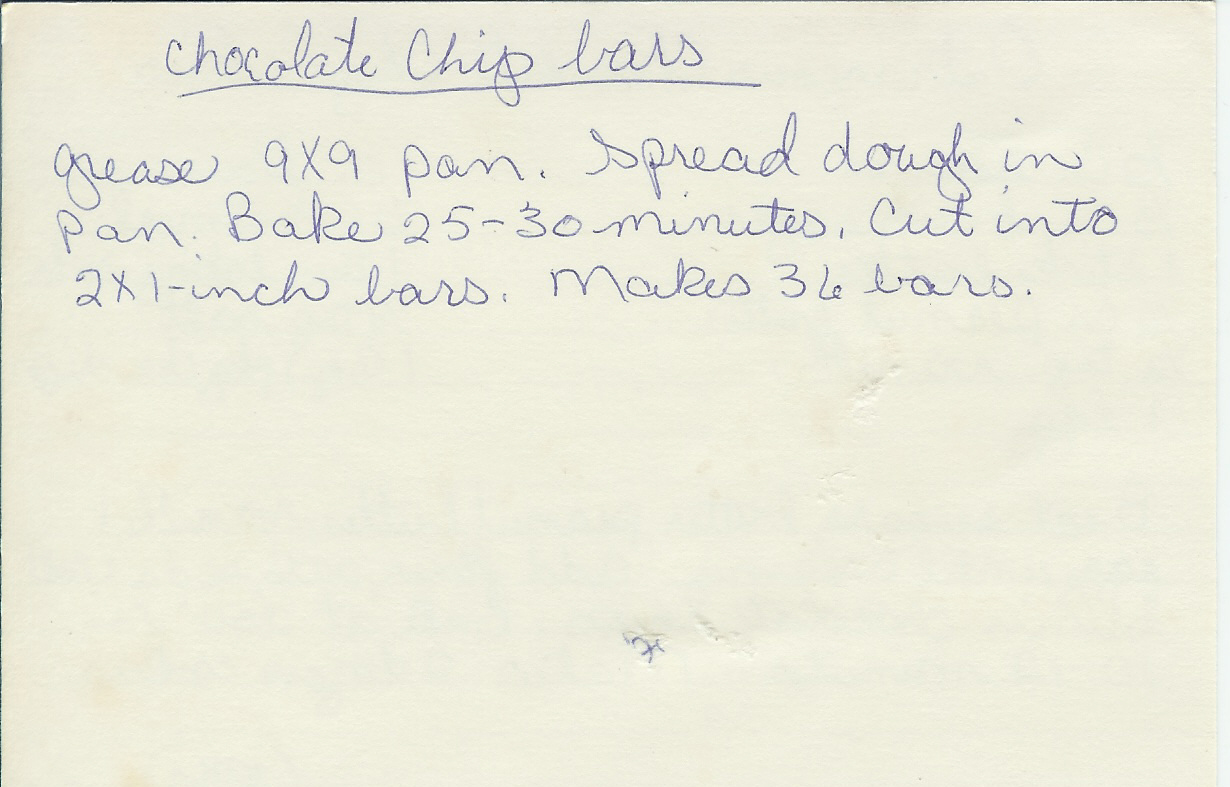 Chocolate Chip bars
grease 9X9 pan. Spread dough in
pan. Bake 25-30 minutes. Cut into
2X1-inch bars. Makes 36 bars.